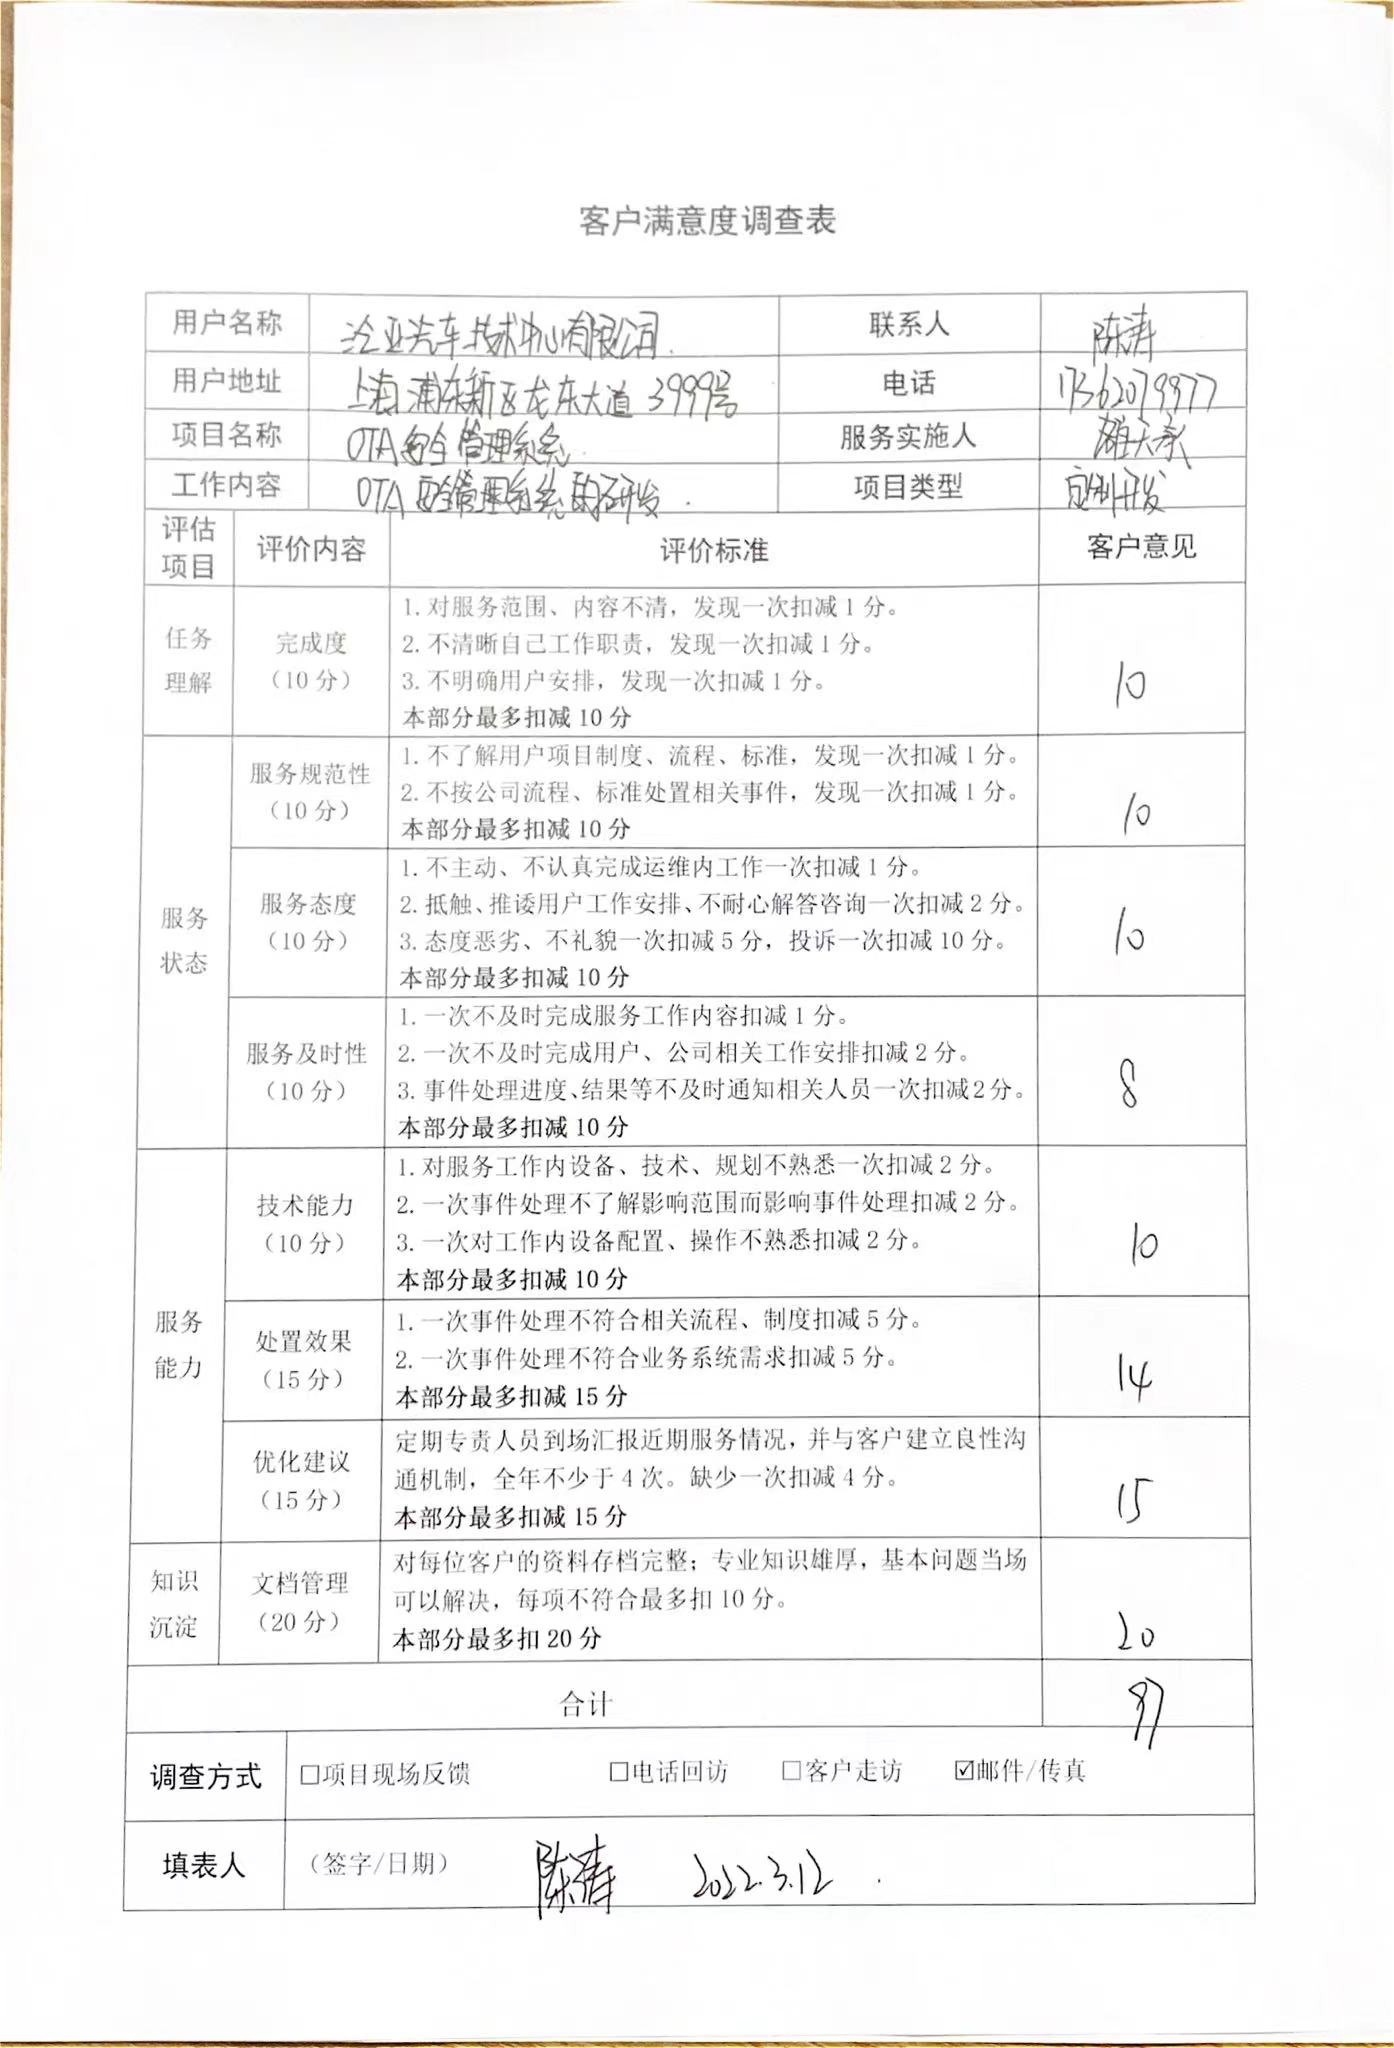 客户满意度调查表
用户名称 泛亚汽车技术中心有限公司. 联系人 陈涛
用户地址 上海浦东新区龙东大道3999号 电话 17362079977
项目名称 OTA安全管理系统. 服务实施人
工作内容 OTA安全管理系统的研发. 项目类型 定制开发
评估项目 评价内容 评价标准 客户意见
任务理解 完成度（10分）
1.对服务范围、内容不清，发现一次扣减1分。
2.不清晰自己工作职责，发现一次扣减1分。
3.不明确用户安排，发现一次扣减1分。
本部分最多扣减10分
10
服务状态 服务规范性（10分）
1.不了解用户项目制度、流程、标准，发现一次扣减1分。
2.不按公司流程、标准处置相关事件，发现一次扣减1分。
本部分最多扣减10分
10
服务态度（10分）
1.不主动、不认真完成运维内工作一次扣减1分。
2.抵触、推诿用户工作安排、不耐心解答咨询一次扣减2分。
3.态度恶劣、不礼貌一次扣减5分，投诉一次扣减10分。
本部分最多扣减10分
10
服务及时性（10分）
1.一次不及时完成服务工作内容扣减1分。
2.一次不及时完成用户、公司相关工作安排扣减2分。
3.事件处理进度、结果等不及时通知相关人员一次扣减2分。
本部分最多扣减10分
8
服务能力 技术能力（10分）
1.对服务工作内设备、技术、规划不熟悉一次扣减2分。
2.一次事件处理不了解影响范围而影响事件处理扣减2分。
3.一次对工作内设备配置、操作不熟悉扣减2分。
本部分最多扣减10分
10
处置效果（15分）
1.一次事件处理不符合相关流程、制度扣减5分。
2.一次事件处理不符合业务系统需求扣减5分。
本部分最多扣减15分
14
优化建议（15分）
定期专责人员到场汇报近期服务情况，并与客户建立良性沟
通机制，全年不少于4次。缺少一次扣减4分。
本部分最多扣减15分
15
知识沉淀 文档管理（20分）
对每位客户的资料存档完整；专业知识雄厚，基本问题当场
可以解决，每项不符合最多扣10分。
本部分最多扣20分
20
合计 97
调查方式 □项目现场反馈 □电话回访 □客户走访 ☑邮件/传真
填表人 （签字/日期） 陈涛 2022.3.12.